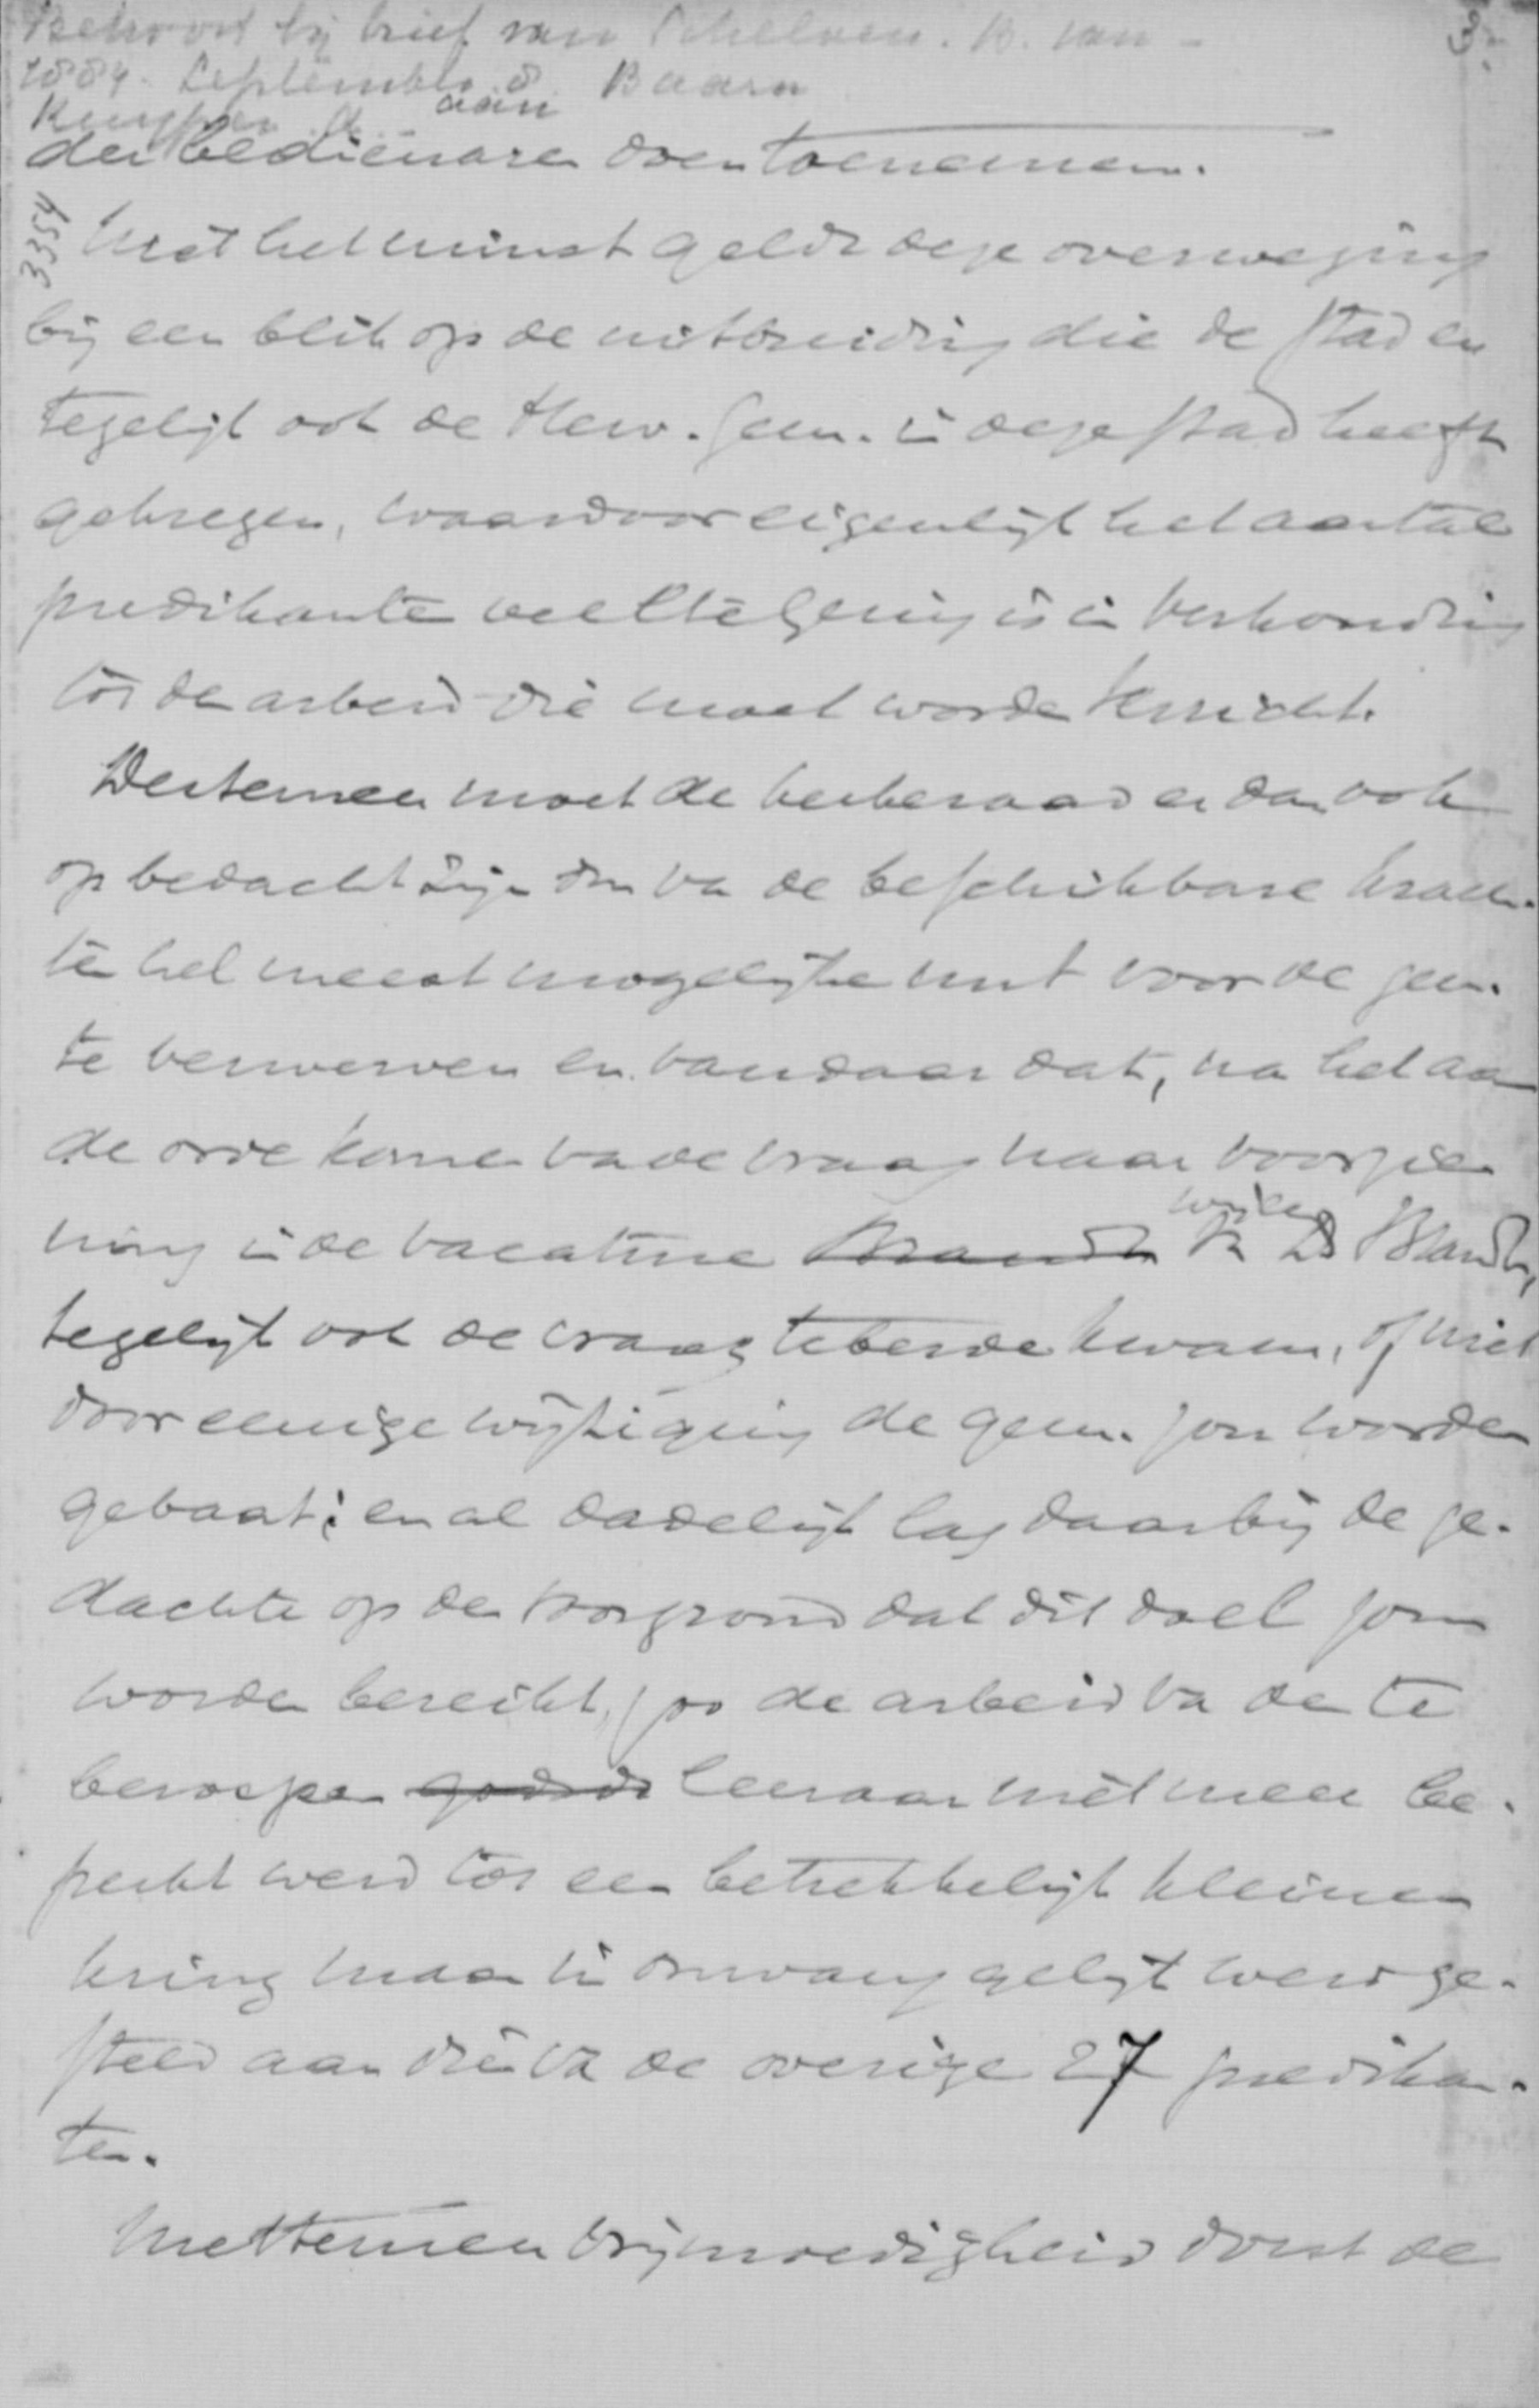 Behoort bij brief van Schelven. B. van - 3.
1884. September 8. Baarn
Kuyper A. aan
der bedienaren doen toenemen.
3354
Niet het minst geldt deze overweging
bij een blik op de uitbreiding die de stad en
tegelijk ook de Herv. Gem. in deze stad heeft
gekregen, waardoor eigenlijk het aantal
predikanten veel te gering is in verhouding
tot den arbeid die moet worden verricht.
Destemeer moet de kerkeraad er dan ook
op bedacht zijn om van de beschikbare krach-
ten het meest mogelijke nut voor de gem.
te verwerven en vandaar dat, na het aan
de orde komen van de vraag naar voorzie-
ning in de vacature Brandt wijlen Ds Brandt,
tegelijk ook de vraag ter berde kwam, of niet
door eenige wijziging de gem. zou worden
gebaat; en al dadelijk lag daarbij de ge-
dachte op den voorgrond dat dit doel zou
worden bereikt, zoo de arbeid van den te
beroepen leeraar niet meer be-
perkt werd tot een betrekkelijk kleinen
kring maar in omvang gelijk werd ge-
steld aan dien van de overige 27 predikan-
ten.
Met temeer vrijmoedigheid dorst de